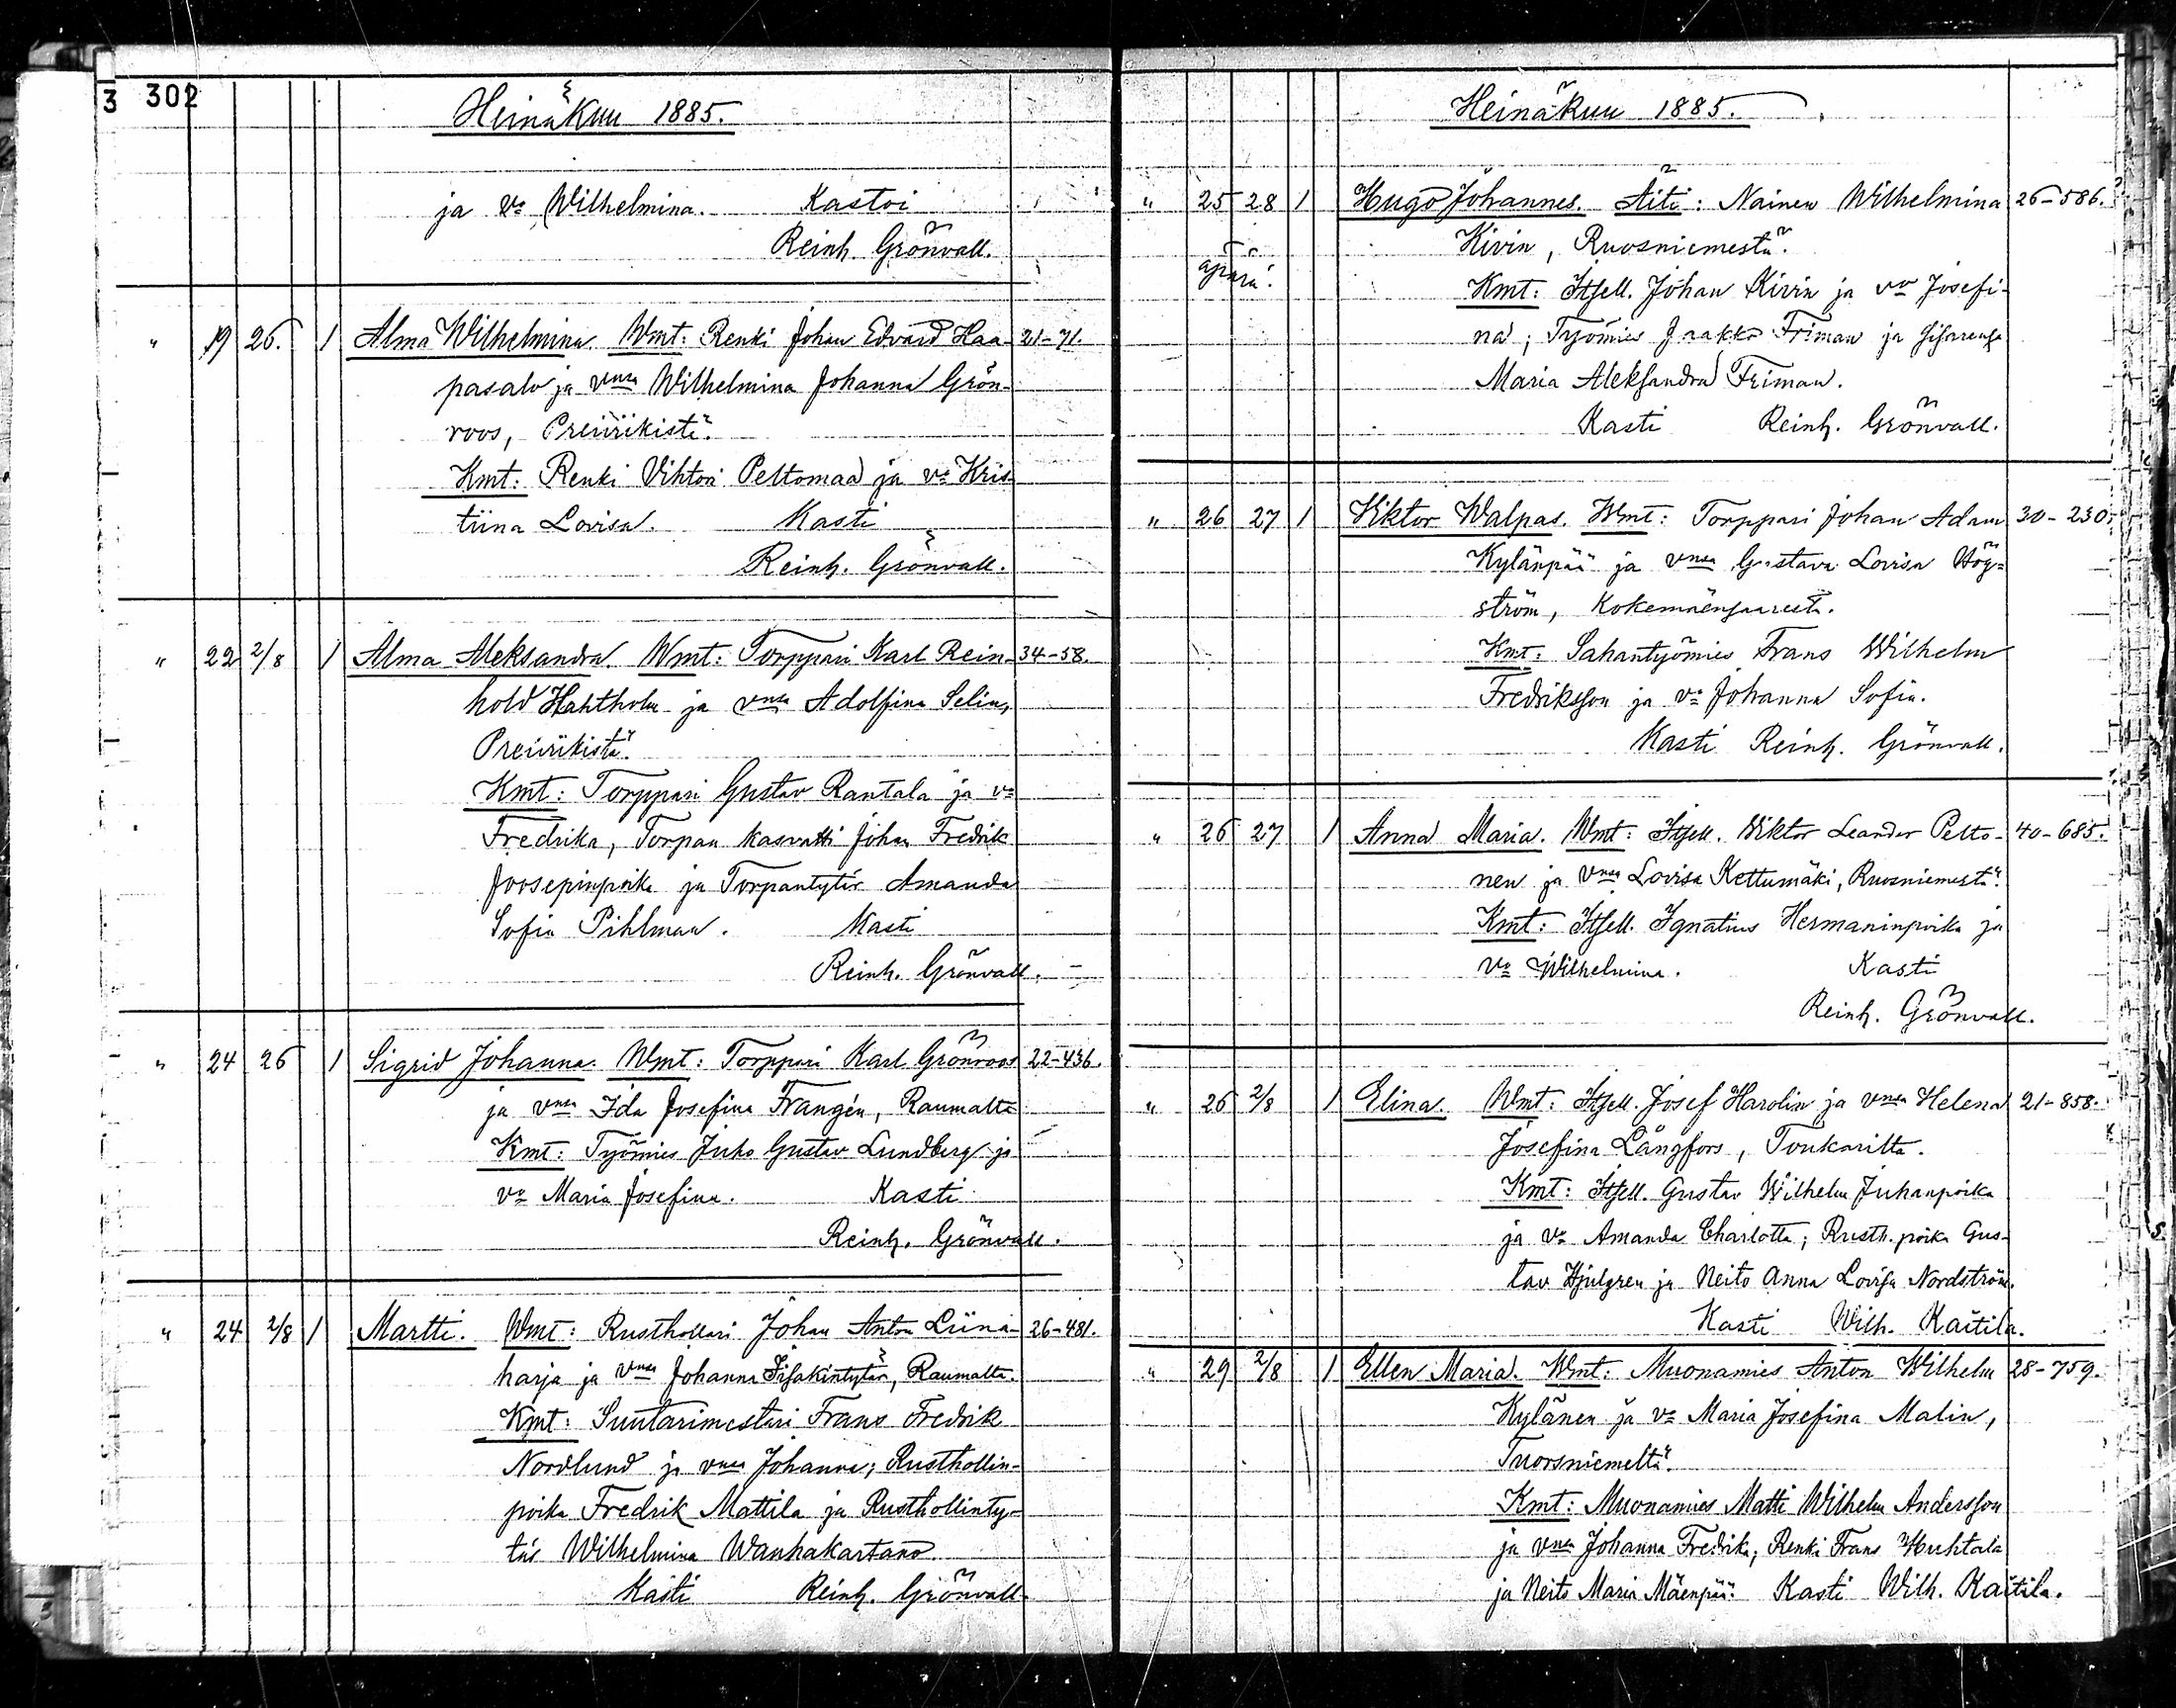 3 302
Heinäkuu 1885.
ja vo Wilhelmina. Kastoi
Reinh. Grönvall.
" 19 26. 1 Alma Wilhelmina. Wmt: Renki Johan Edvard Haa- 21-71.
pasalo ja vnsa Wilhelmina Johanna Grön-
roos, Preiviikistä.
Kmt: Renki Vihtori Peltomaa ja vo Kris-
tiina Lovisa. Kasti
Reinh. Grönvall.
" 22 2/8 1 Alma Aleksandra. Wmt: Torppari Karl Rein- 34-58.
hold Hahtholm ja vnsa Adolfina Selin,
Preiviikistä.
Kmt: Torppari Gustav Rantala ja vo
Fredrika, Torpan kasvatti Johan Fredrik
Joosepinpoika ja Torpantytär Amanda
Sofia Pihlman. Kasti
Reinh. Grönvall.
" 24 26 1 Sigrid Johanna. Wmt: Torppari Karl Grönroos 22-436.
ja vnsa Ida Josefina Frangén, Raumalta
Kmt: Työmies Juho Gustav Lundberg ja
vo Maria Josefina. Kasti
Reinh. Grönvall.
" 24 2/8 1 Martti. Wmt: Rusthollari Johan Anton Liina- 26-481.
harja ja vnsa Johanna Iisakintytär, Raumalta.
Kmt: Suutarimestari Frans Fredrik
Nordlund ja vnsa Johanna; Rusthollin-
poika Fredrik Mattila ja Rusthollinty-
tär Wilhelmina Wanhakartano.
Kasti Reinh. Grönvall.
Heinäkuu 1885.
" 25 28 1 Hugo Johannes. Äiti: Nainen Wilhelmina 26-586.
Kivin, Ruosniemestä.
äpärä. Kmt: Itsell. Johan Kivin ja vo Josefi-
na; Työmies Jaakko Friman ja sisarensa
Maria Aleksandra Friman.
Kasti Reinh. Grönvall.
" 26 27 1 Viktor Walpas. Wmt: Torppari Johan Adam 30-230.
Kylänpää ja vnsa Gustava Lovisa Hög-
ström, Kokemäensaaresta.
Kmt: Sahantyömies Frans Wilhelm
Fredriksson ja vo Johanna Sofia.
Kasti Reinh. Grönvall.
" 26 27 1 Anna Maria. Wmt: Itsell. Viktor Leander Pelto- 40-685.
nen ja vnsa Lovisa Kettumäki, Ruosniemestä.
Kmt: Itsell. Ignatius Hermaninpoika ja
vo Wilhelmina. Kasti
Reinh. Grönvall.
" 26 2/8 1 Elina. Wmt: Itsell. Josef Harolin ja vnsa Helena 21-858.
Josefina Långfors, Toukarilta.
Kmt: Itsell. Gustav Wilhelm Juhanpoika
ja vo Amanda Charlotta; Rusth. poika Gus-
tav Hjulgren ja Neito Anna Lovisa Nordström.
Kasti Wilh. Kaitila.
" 29 2/8 1 Ellen Maria. Wmt: Muonamies Anton Wilhelm 28-759.
Kylänen ja vo Maria Josefina Malin,
Tuorsniemeltä.
Kmt: Muonamies Matti Wilhelm Andersson
ja vnsa Johanna Fredrika; Renki Frans Huhtala
ja Neito Maria Mäenpää. Kasti Wilh. Kaitila.